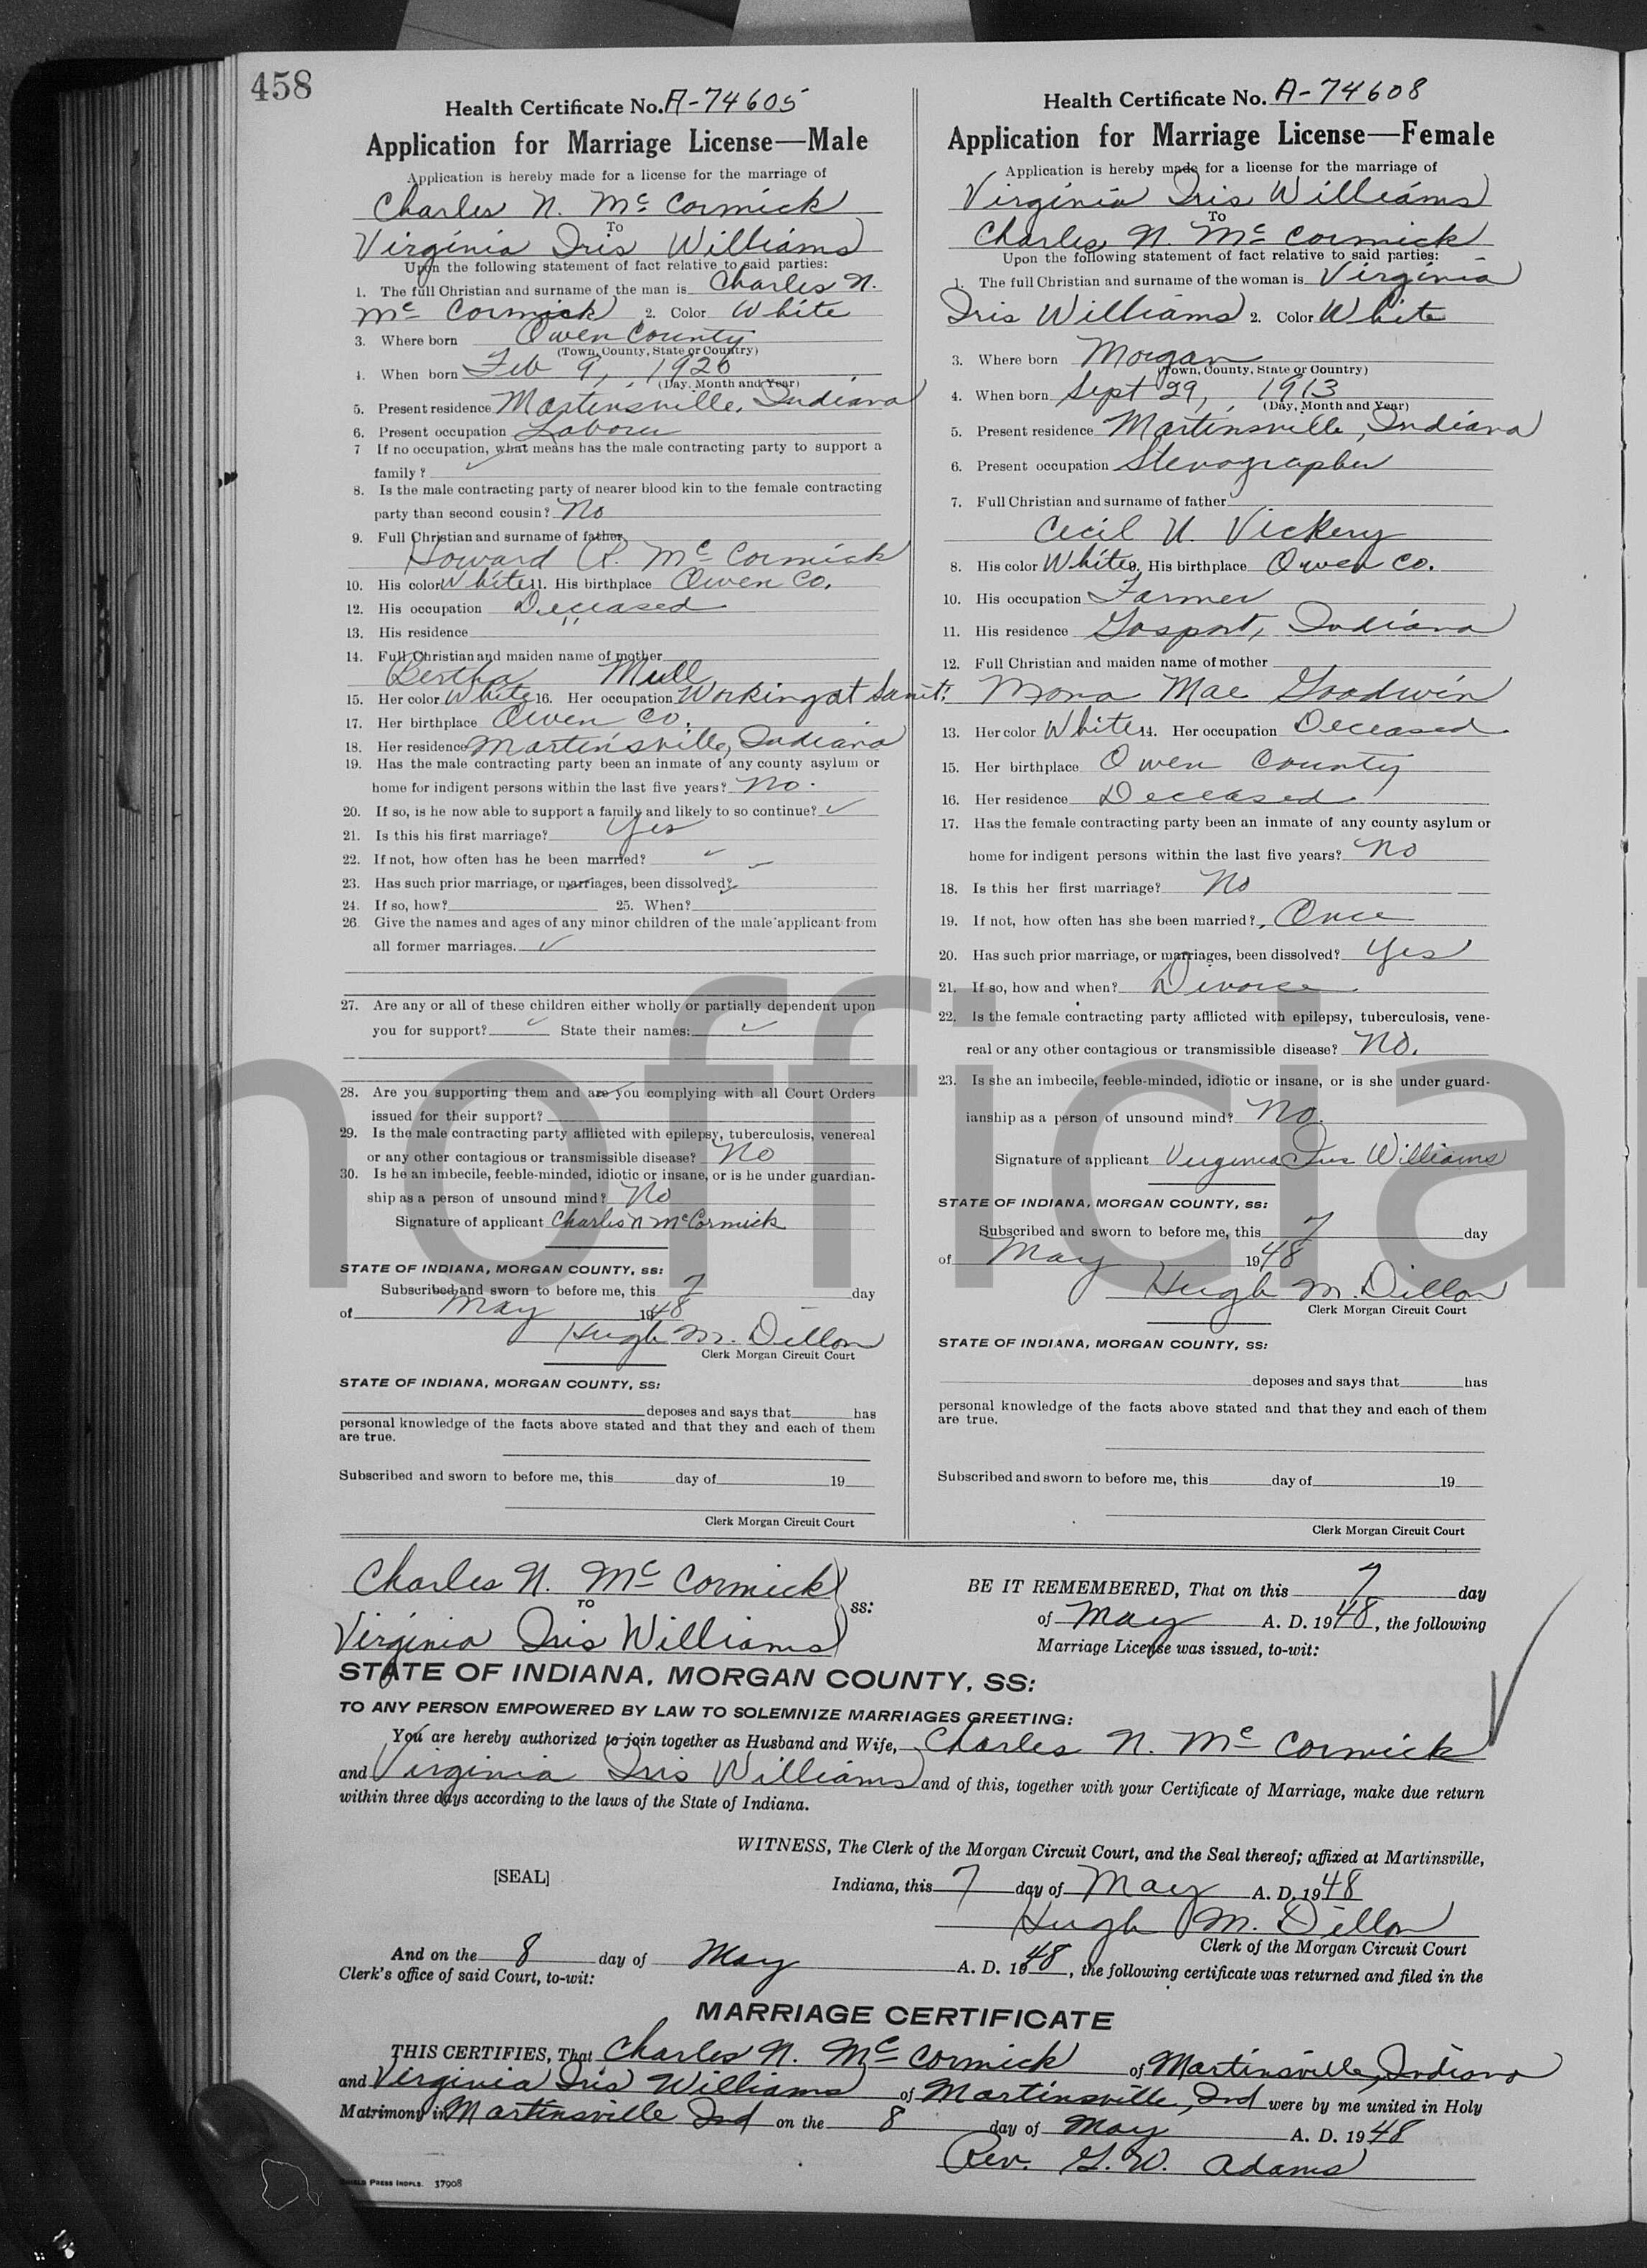 458
Health Certificate No. A-74605
Application for Marriage License—Male
Application is hereby made for a license for the marriage of
Charles N. Mc Cormick
To
Virginia Iris Williams
Upon the following statement of fact relative to said parties:
1. The full Christian and surname of the man is Charles N.
Mc Cormick 2. Color White
3. Where born Owen County
(Town, County, State or Country)
4. When born Feb 9, 1926
(Day, Month and Year)
5. Present residence Martinsville, Indiana
6. Present occupation Laborer
7 If no occupation, what means has the male contracting party to support a
family? ✓
8. Is the male contracting party of nearer blood kin to the female contracting
party than second cousin? No
9. Full Christian and surname of father
Howard R. Mc Cormick
10. His color White 11. His birthplace Owen Co.
12. His occupation Deceased
13. His residence "
14. Full Christian and maiden name of mother
Bertha Mull
15. Her color White 16. Her occupation Working at Sanit.
17. Her birthplace Owen Co.
18. Her residence Martinsville, Indiana
19. Has the male contracting party been an inmate of any county asylum or
home for indigent persons within the last five years? No.
20. If so, is he now able to support a family and likely to so continue? ✓
21. Is this his first marriage? Yes
22. If not, how often has he been married? ✓
23. Has such prior marriage, or marriages, been dissolved? ✓
24. If so, how? 25. When?
26. Give the names and ages of any minor children of the male applicant from
all former marriages. ✓
27. Are any or all of these children either wholly or partially dependent upon
you for support? ✓ State their names: ✓
28. Are you supporting them and are you complying with all Court Orders
issued for their support?
29. Is the male contracting party afflicted with epilepsy, tuberculosis, venereal
or any other contagious or transmissible disease? No
30. Is he an imbecile, feeble-minded, idiotic or insane, or is he under guardian-
ship as a person of unsound mind? No
Signature of applicant Charles N McCormick
STATE OF INDIANA, MORGAN COUNTY, SS:
Subscribed and sworn to before me, this 7 day
of May 1948
Hugh M. Dillon
Clerk Morgan Circuit Court
STATE OF INDIANA, MORGAN COUNTY, SS:
deposes and says that has
personal knowledge of the facts above stated and that they and each of them
are true.
Subscribed and sworn to before me, this day of 19
Clerk Morgan Circuit Court
Health Certificate No. A-74608
Application for Marriage License—Female
Application is hereby made for a license for the marriage of
Virginia Iris Williams
To
Charles N. Mc Cormick
Upon the following statement of fact relative to said parties:
1. The full Christian and surname of the woman is Virginia
Iris Williams 2. Color White
3. Where born Morgan
(Town, County, State or Country)
4. When born Sept 29, 1913
(Day, Month and Year)
5. Present residence Martinsville, Indiana
6. Present occupation Stenographer
7. Full Christian and surname of father
Cecil U. Vickery
8. His color White 9. His birthplace Owen Co.
10. His occupation Farmer
11. His residence Gosport, Indiana
12. Full Christian and maiden name of mother
Mona Mae Goodwin
13. Her color White 14. Her occupation Deceased
15. Her birthplace Owen County
16. Her residence Deceased
17. Has the female contracting party been an inmate of any county asylum or
home for indigent persons within the last five years? No
18. Is this her first marriage? No
19. If not, how often has she been married? Once
20. Has such prior marriage, or marriages, been dissolved? Yes
21. If so, how and when? Divorce
22. Is the female contracting party afflicted with epilepsy, tuberculosis, vene-
real or any other contagious or transmissible disease? No.
23. Is she an imbecile, feeble-minded, idiotic or insane, or is she under guard-
ianship as a person of unsound mind? No.
Signature of applicant Virginia Iris Williams
STATE OF INDIANA, MORGAN COUNTY, SS:
Subscribed and sworn to before me, this 7 day
of May 1948
Hugh M. Dillon
Clerk Morgan Circuit Court
STATE OF INDIANA, MORGAN COUNTY, SS:
deposes and says that has
personal knowledge of the facts above stated and that they and each of them
are true.
Subscribed and sworn to before me, this day of 19
Clerk Morgan Circuit Court
nofficial
Charles N. Mc Cormick
TO
Virginia Iris Williams
ss:
BE IT REMEMBERED, That on this 7 day
of May A. D. 1948, the following
Marriage License was issued, to-wit:
STATE OF INDIANA, MORGAN COUNTY, SS:
TO ANY PERSON EMPOWERED BY LAW TO SOLEMNIZE MARRIAGES GREETING:
You are hereby authorized to join together as Husband and Wife, Charles N. Mc Cormick
and Virginia Iris Williams and of this, together with your Certificate of Marriage, make due return
within three days according to the laws of the State of Indiana.
WITNESS, The Clerk of the Morgan Circuit Court, and the Seal thereof; affixed at Martinsville,
[SEAL] Indiana, this 7 day of May A. D. 1948
Hugh M. Dillon
Clerk of the Morgan Circuit Court
And on the 8 day of May A. D. 1948, the following certificate was returned and filed in the
Clerk's office of said Court, to-wit:
MARRIAGE CERTIFICATE
THIS CERTIFIES, That Charles N. Mc Cormick of Martinsville, Indiana
and Virginia Iris Williams of Martinsville, Ind were by me united in Holy
Matrimony in Martinsville Ind on the 8 day of May A. D. 1948
Rev. G. W. Adams
PRESS INDPLS. 37908